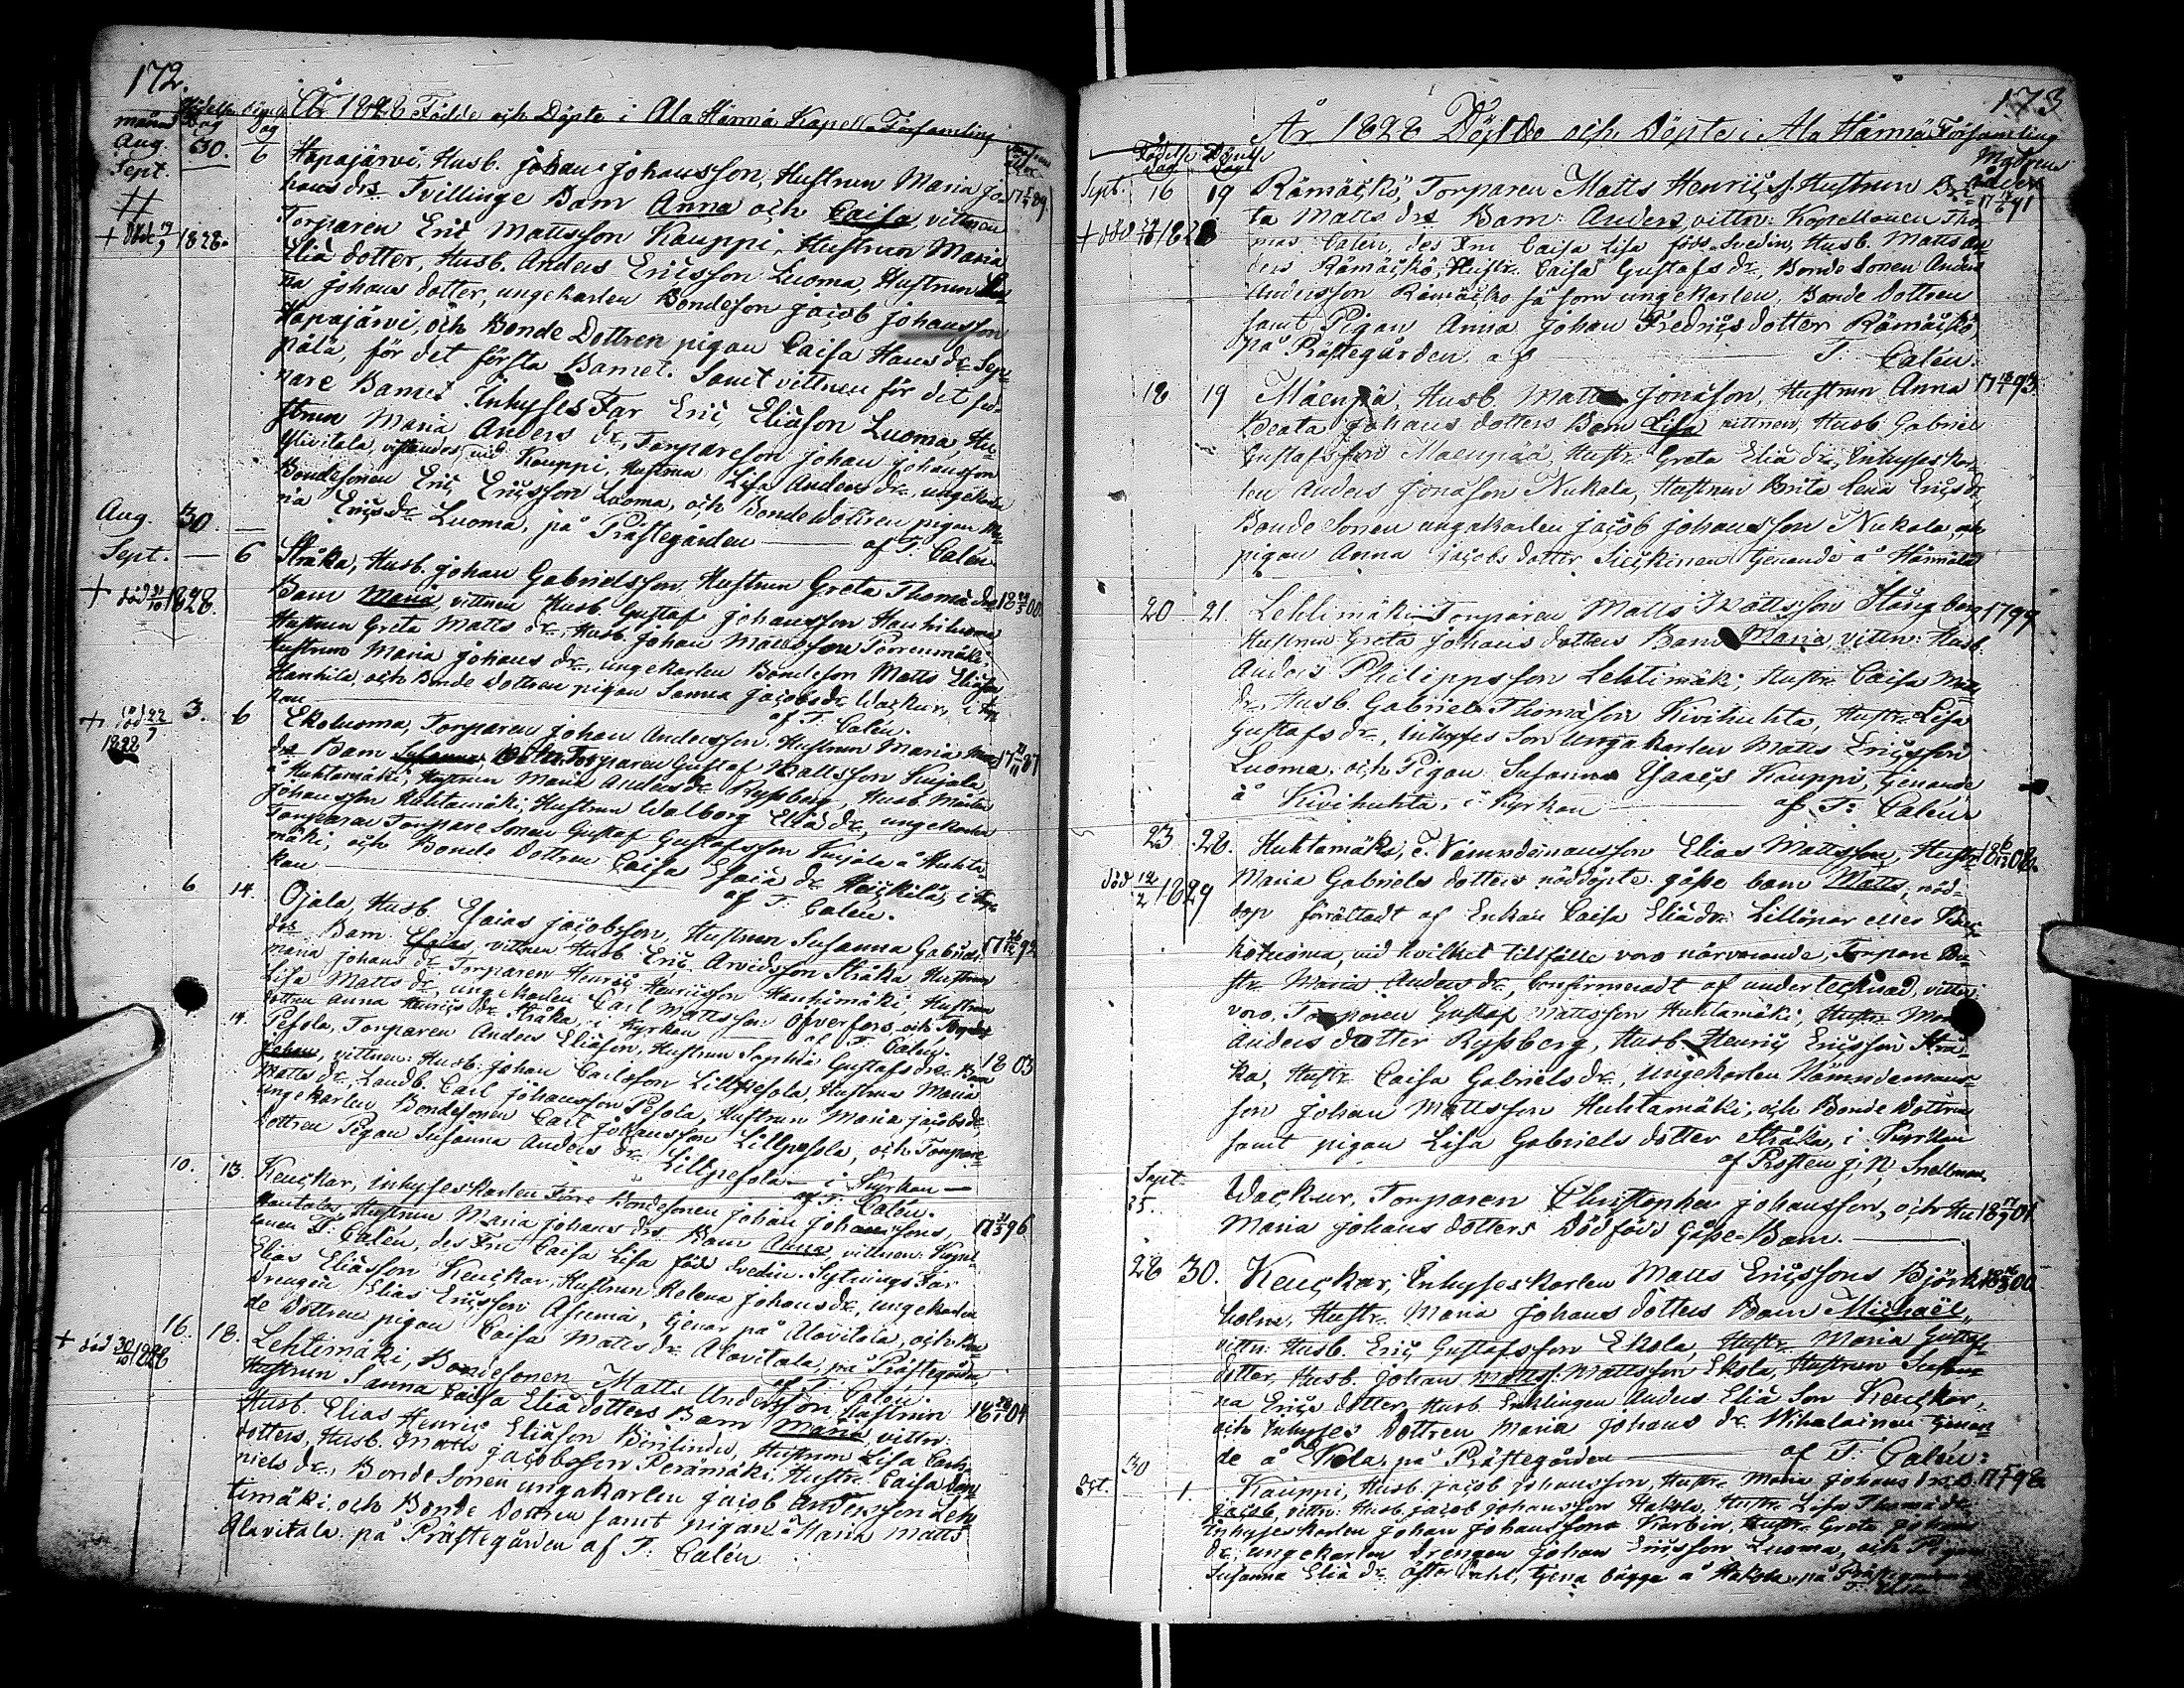 172.
År 1828 Födde och Döpte i Ala Härmä Kapells Församling
månad Födelse Dag Döpelse Dag
Aug. 30. 6
Sept.
Hapajärvi, Husb. johan johansson, Hustrun Maria jo-
hans drs Tvillinge Barn Anna och Caisa, vittnen
Torparen Eric Mattsson Kauppi, Hustrun Maria
+ död 1828.
Eliä dotter, Husb. Anders Ericsson Luoma, Hustrun
na johans dotter, ungekarlen Bondeson jacob johansson
Hapajärvi, och Bonde Dottren pigan Caisa Hans dr Sep-
pälä, för det första Barnet. Samt vittnen för det sed-
nare Barnet Inhyses Far Eric Eliason Luoma, Hu-
strun Maria Anders dr, Torpareson johan johansson
Ylivitala, vistandes vid Kauppi, Hustrun Lisa Anders dr, ungekarlen
Bondesonen Eric Ericsson Luoma, och Bonde Dottren pigan Ma-
ria Erics dr Luoma, på Prästegården — af T. Calén.
Aug. 30. —
Sept. — 6
Stråka, Husb. johan Gabrielsson, Hustrun Greta Thomä drs
+ död 1828.
Barn Maria, vittnen Husb. Gustaf johansson Hanhiluoma
Hustrun Greta Matts dr, Husb. johan Mattsson Porrenmäki,
Hustrun Maria johans dr, ungekarlen Bondeson Matts Eliason
Hanhila, och Bonde Dottren pigan Sanna Jacobs dr Wackur, i Kyr-
kan af T. Calén.
+ död 22/9 1828
3. 6
Ekoluoma, Torparen johan Andersson. Hustrun Maria
drs Barn Susanna, Torparen Gustaf Mattsson Kujala
å Huhtamäki, Hustrun Maria Anders dr Ryssberg, Husb. Mårten
johansson Huhtamäki, Hustrun Walborg Eliä dr, ungekarlen
Torparen Torpare Sonen Gustaf Gustafsson Kujala å Huhta-
mäki, och Bonde Dottren Caisa Esaiä dr Haickilä, i Kyr-
kan — af T. Calén.
6 14.
Ojala, Husb. Esaias jacobsson, Hustrun Susanna Gabriels
drs Barn Esaias, vittnen Husb. Eric Arvidsson Stråka, Hustrun
maria johans dr. Torparen Henric Henricsson Hanhimäki, Hustrun
Lisa Matts dr, ungekarlen Carl Mattsson Öfverfors, och Torpare
Dottren Anna Henrics dr Stråka, i Kyrkan — af T. Calén.
14.
Pesola, Torparen Anders Eliason, Hustrun Sophia Gustafs drs Barn 1803
johan, vittnen: Husb. johan Carlsson Lillpesola, Hustrun Maria
Matts dr, Landb. Carl johansson Pesola, Hustrun Maria jacobs dr,
ungekarlen Bondesonen Carl johansson Lillpesola, och Torpare-
dottren Pigan Susanna Anders dr Lillpesola — i Kyrkan —
af T. Calén.
10. 13.
Keuckar, inhyseskarlen Före Bondesonen johan johanssons,
Hautala, Hustrun Maria johans drs Barn Anna, vittnen: Kapel-
lanen T. Calén, des Fru Caisa Lisa född Svedin. Sytnings Far
Elias Eliasson Keuckar, Hustrun Helena Johans dr, ungekarlen
Drengen Elias Ericsson Alsumia, tjenar på Alavitala, och Bon-
de Dottren pigan Caisa Matts dr Alavitala, på Prästegården
af T. Calén.
16. 18.
+ död 30/10 1828
Lehtimäki, Bondesonen Matts Andersson, Hustrun
Hustrun Sanna Caisa Eliä dotters Barn Maria, vittn:
Husb. Elias Henric Eliason Birilindu, Hustrun Lisa Carls
dotters, Husb. Matts jacobsson Perämäki, Hustr. Caisa Dani-
niels dr., Bonde Sonen ungakarlen jacob Andersson Leh-
timäki och Bonde Dottren samt pigan Maria Matts
Alavitala. på Prästegården af T: Calén
173
År 1828 Döptde och Döpte i Ala Härmä Församling
Födelse Dag Döpelse Dag
Modrens ålder
Sept. 16 19
Rämäckö, Torparen Matts Henrics. Hustrun Bri-
+ död 1828
ta Matts drs Barn: Anders, vittn: Kapellanen Tho-
mas Calén, des Fru Caisa Lisa föds. Svedin, Husb. Matts An-
ders Rämäckö, Hustr. Caisa Gustafs dr, Bonde Sonen Anders
Andersson Rämäckö så som ungekarlen, Bonde Dottren
samt Pigan Anna Johan Fredrics dotter Rämäckö,
på Prästegården af — T: Calén.
18 19
Mäenpä, Husb. Matts Jonason, Hustrun Anna
Beata johans dotters Barn Lisa vittnen, Husb. Gabriel
Gustafsson Maenpää, Hustr. Greta Eliä dr, Inhyseskar-
len Anders Jonason Nukala, Hustrun Brita Lena Erics dr
Bonde Sonen ungakarlen jacob johansson Nukala, och
pigan Anna jacobs dotter Sieckinen tjenande å Härmälä
20. 21.
Lehtimäki Torparen Matts Mattsson Stångberg 1799
Hustrun Greta johans dotters Barn Maria, vittn: Husb.
Anders Philippsson Lehtimäki, Hustr. Caisa Matts
dr, Husb. Gabriel Thomäson Kivihuhta, Hustr. Lisa
Gustafs dr, inhyses Son Ungakarlen Matts Ericsson
Luoma, och Pigan Susanna Ysaacs Kauppi, tjenande
å Kivihuhta, i Kyrkan — af T: Calén
23 28.
Huhtamäki, F. Nämndemansson Elias Mattsson, Hustr.
död 12/2 1829
Maria Gabriels dotters nöddöpte gåsse barn Matts, nöd-
dop förrättadt af Enkan Caisa Eliä dr Lillönar eller
koluoma, vid hvilket tillfälle voro närvarande, Torpare Hu-
str. Maria Anders dr, Confirmeradt af undertecknad, vittn:
voro, Torparen Gustaf Mattsson Huhtamäki, Hustr. Maria
Anders dotter Ryssberg, Husb. Henric Ericsson Strå-
ka, Hustr. Caisa Gabriels dr, ungekarlen Nämndemans-
son johan Mattsson Huhtamäki, och Bonde Dottren
samt pigan Lisa Gabriels dotter Stråka, i Kyrkan
af Prosten J: N: Snellman
Sept. 25.
Wackur, Torparen Christopher johansson, och Hu
Maria johans dotters Dödfödd Gåsse-Barn. —
28 30.
Keuckar, Inhyseskarlen Matts Ericssons Björk-
holm, Hustr. Maria Johans dotters Barn Michaël,
vittn: Husb. Eric Gustafsson Ekola, Hustr. Maria Gustafs
dotter, Husb. johan Matts. Mattsson Ekola, Hustrun Susan-
na Erics dotter, Husb. Enklingen Anders Eliä Son Keuckar,
och Inhyses Dottren Maria johans dr. Wihalainen tjenan-
de å Ekola, på Prästegården — af T: Calén:
Oct. 30 1.
Kauppi, Husb. jacob johansson, Hustr. Maria johans drs B.
jacob, vittn: Husb. jacob johansson Hakola, Hustr. Lisa Thomä dr.
Inhyseskarlen johan johansson Korbin, Hustr. Greta johans
dr, ungekarlen Drengen johan Ericsson Luoma, och Pigan
Susanna Eliä dr Österdahl, tjena bägge å Hakola, på Prästegården
T: Calén